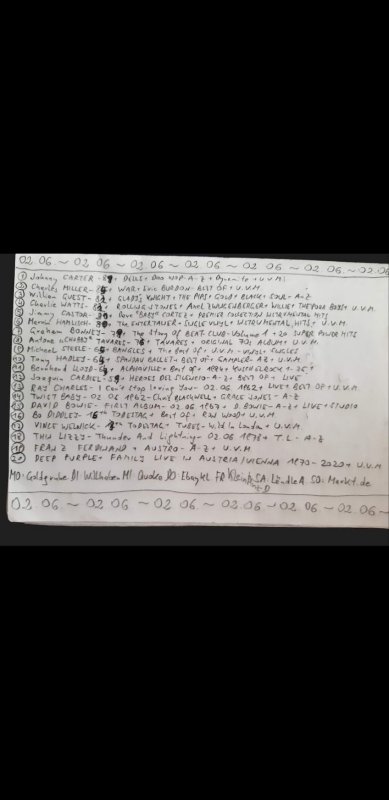 02.06. ~ 02.06 ~ 02.06 ~ 02.06 ~ 02.06 ~ 02.06 ~ 02.06
① Johnny CARTER - + DELLS + DOO WOP - A-Z + U.V.M.
② Charles MILLER - + WAR + Eric BURDON - BEST OF + U.V.M.
③ William GUEST - + GLADYS KNIGHT + THE PIPS + GOLD + BLACK + SOUL - A-Z
④ Charlie WATTS - + ROLLING STONES + AXEL ZWINGENBERGER + WILLIE + THE POOR BOYS + U.V.M.
⑤ Jimmy CASTOR - + Dave "BABY" CORTEZ + PREMIER COLLECTION INSTRUMENTAL HITS
⑥ Marvin HAMLISCH - + THE ENTERTAINER + SINGLE VINYL + INSTRUMENTAL HITS + U.V.M.
⑦ Graham BONNEY - + The Story OF BEAT-CLUB - Volume 1 + 24 SUPER POWER HITS
⑧ Antone "CHUBBY" TAVARES - + TAVARES + ORIGINAL ALBUM + U.V.M.
⑨ Michael STEELE - + BANGLES + The Best OF + U.V.M. - VINYL + SINGLES
⑩ Tony HADLEY - + SPANDAU BALLET + BEST OF + SAMPLER - A-Z + U.V.M.
⑪ Bernhard LLOYD - + ALPHAVILLE + Best of + 1984 + KUSCHELROCK
⑫ Joaquin CARDIEL - + HEROES DEL SILENCIO - A-Z + BEST OF + LIVE
⑬ RAY CHARLES - I Can't Stop Loving You - 02.06 1962 + LIVE + BEST OF + U.V.M.
⑭ TWIST BABY - 02.06 1962 - Chris BLACKWELL + GRACE JONES - A-Z
⑮ DAVID BOWIE - FIRST ALBUM - 02.06 1967 + D. BOWIE - A-Z + LIVE + STUDIO
⑯ BO DIDDLEY - TODESTAG + BEST OF + RON WOOD + U.V.M.
⑰ VINCE WELNICK - TODESTAG + TUBES - Wild in London + U.V.M.
⑱ THIN LIZZY - Thunder And Lightning - 02.06 + T.L. - A-Z
⑲ FRANZ FERDINAND + AUSTRO - A-Z + U.V.M.
⑳ DEEP PURPLE + FAMILY LIVE IN AUSTRIA/VIENNA 1970-2020 + U.V.M.
MO: Goldgrube DI: Willhaben MI: Quoka DO: Ebay KL FR: SA: LändleA. SO: Markt.de
02.06 ~ 02.06 ~ 02.06 ~ 02.06 ~ 02.06 ~ 02.06 ~ 02.06